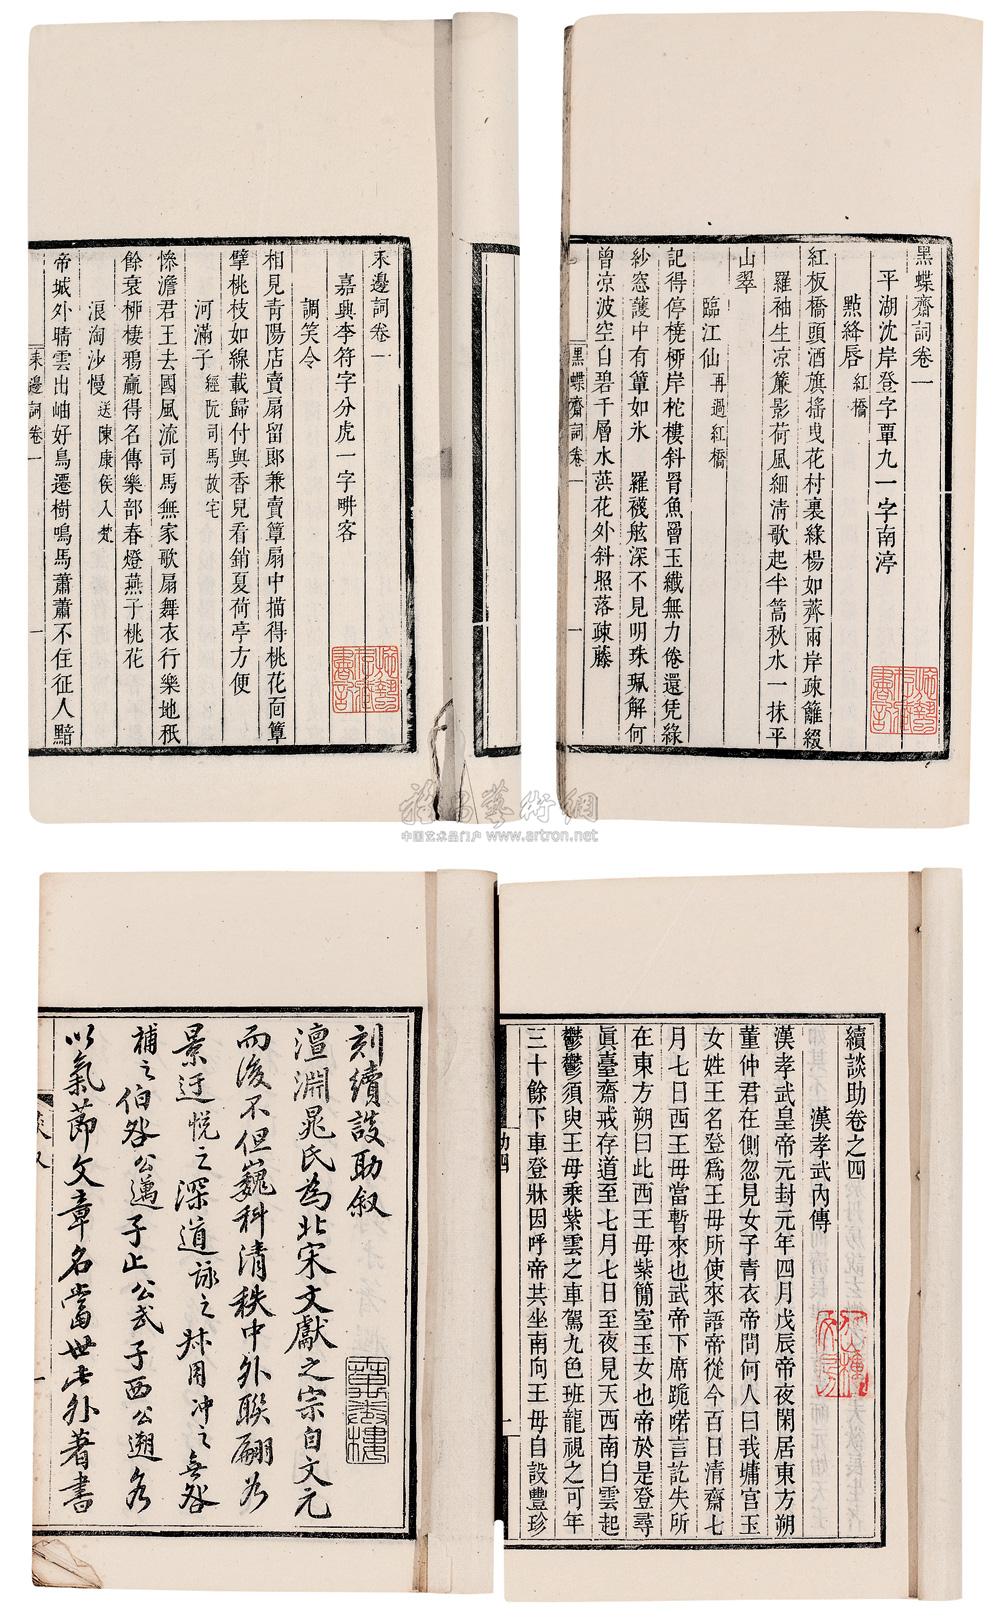 黑蝶齋詞卷一
平湖沈岸登字覃九一字南渟
點絳唇紅橋
紅板橋頭酒旗搖曳花村裏綠楊如薺兩岸疎籬綴
羅袖生凉簾影荷風細清歌起半篙秋水一抹平
山翠
臨江仙再過紅橋
記得停橈栁岸柁樓斜罥魚罾玉纖無力倦還凭綠
紗窓護中有簟如氷　羅襪舷深不見明珠珮解何
曾凉波空白碧千層水葓花外斜照落疎藤
黑蝶齋詞卷一
一
耒邊詞卷一
嘉興李符字分虎一字畊客
調笑令
相見青陽店賣扇留郎兼賣簟扇中描得桃花面簟
擘桃枝如線載歸付與香兒看銷夏荷亭方便
河滿子經阮司馬故宅
慘澹君王去國風流司馬無家歌扇舞衣行樂地秖
餘衰栁棲鴉贏得名傳樂部春燈燕子桃花
浪淘沙慢送陳康侯入梵
帝城外晴雲出岫好鳥遷樹鳴馬蕭蕭不住征人黯
耒邊詞卷一
一
中国艺术品门户 www.artron.net
續談助卷之四
漢孝武內傳
漢孝武皇帝元封元年四月戊辰帝夜閑居東方朔
董仲君在側忽見女子青衣帝問何人曰我墉宮玉
女姓王名登爲王母所使來語帝從今百日清齋七
月七日西王母當暫來也武帝下席跪喏言訖失所
在東方朔曰此西王母紫簡室玉女也帝於是登尋
眞臺齋戒存道至七月七日至夜見天西南白雲起
鬱鬱須臾王母乘紫雲之車駕九色班龍視之可年
三十餘下車登牀因呼帝共坐南向王母自設豐珍
助四
一
刻續談助叙
澶淵晁氏為北宋文獻之宗自文元
而後不但巍科清秩中外聯翩若
景迂悦之深道詠之㧑用冲之無咎
補之伯咎公邁子止公武子西公遡各
以氣節文章名當世此外著書
一